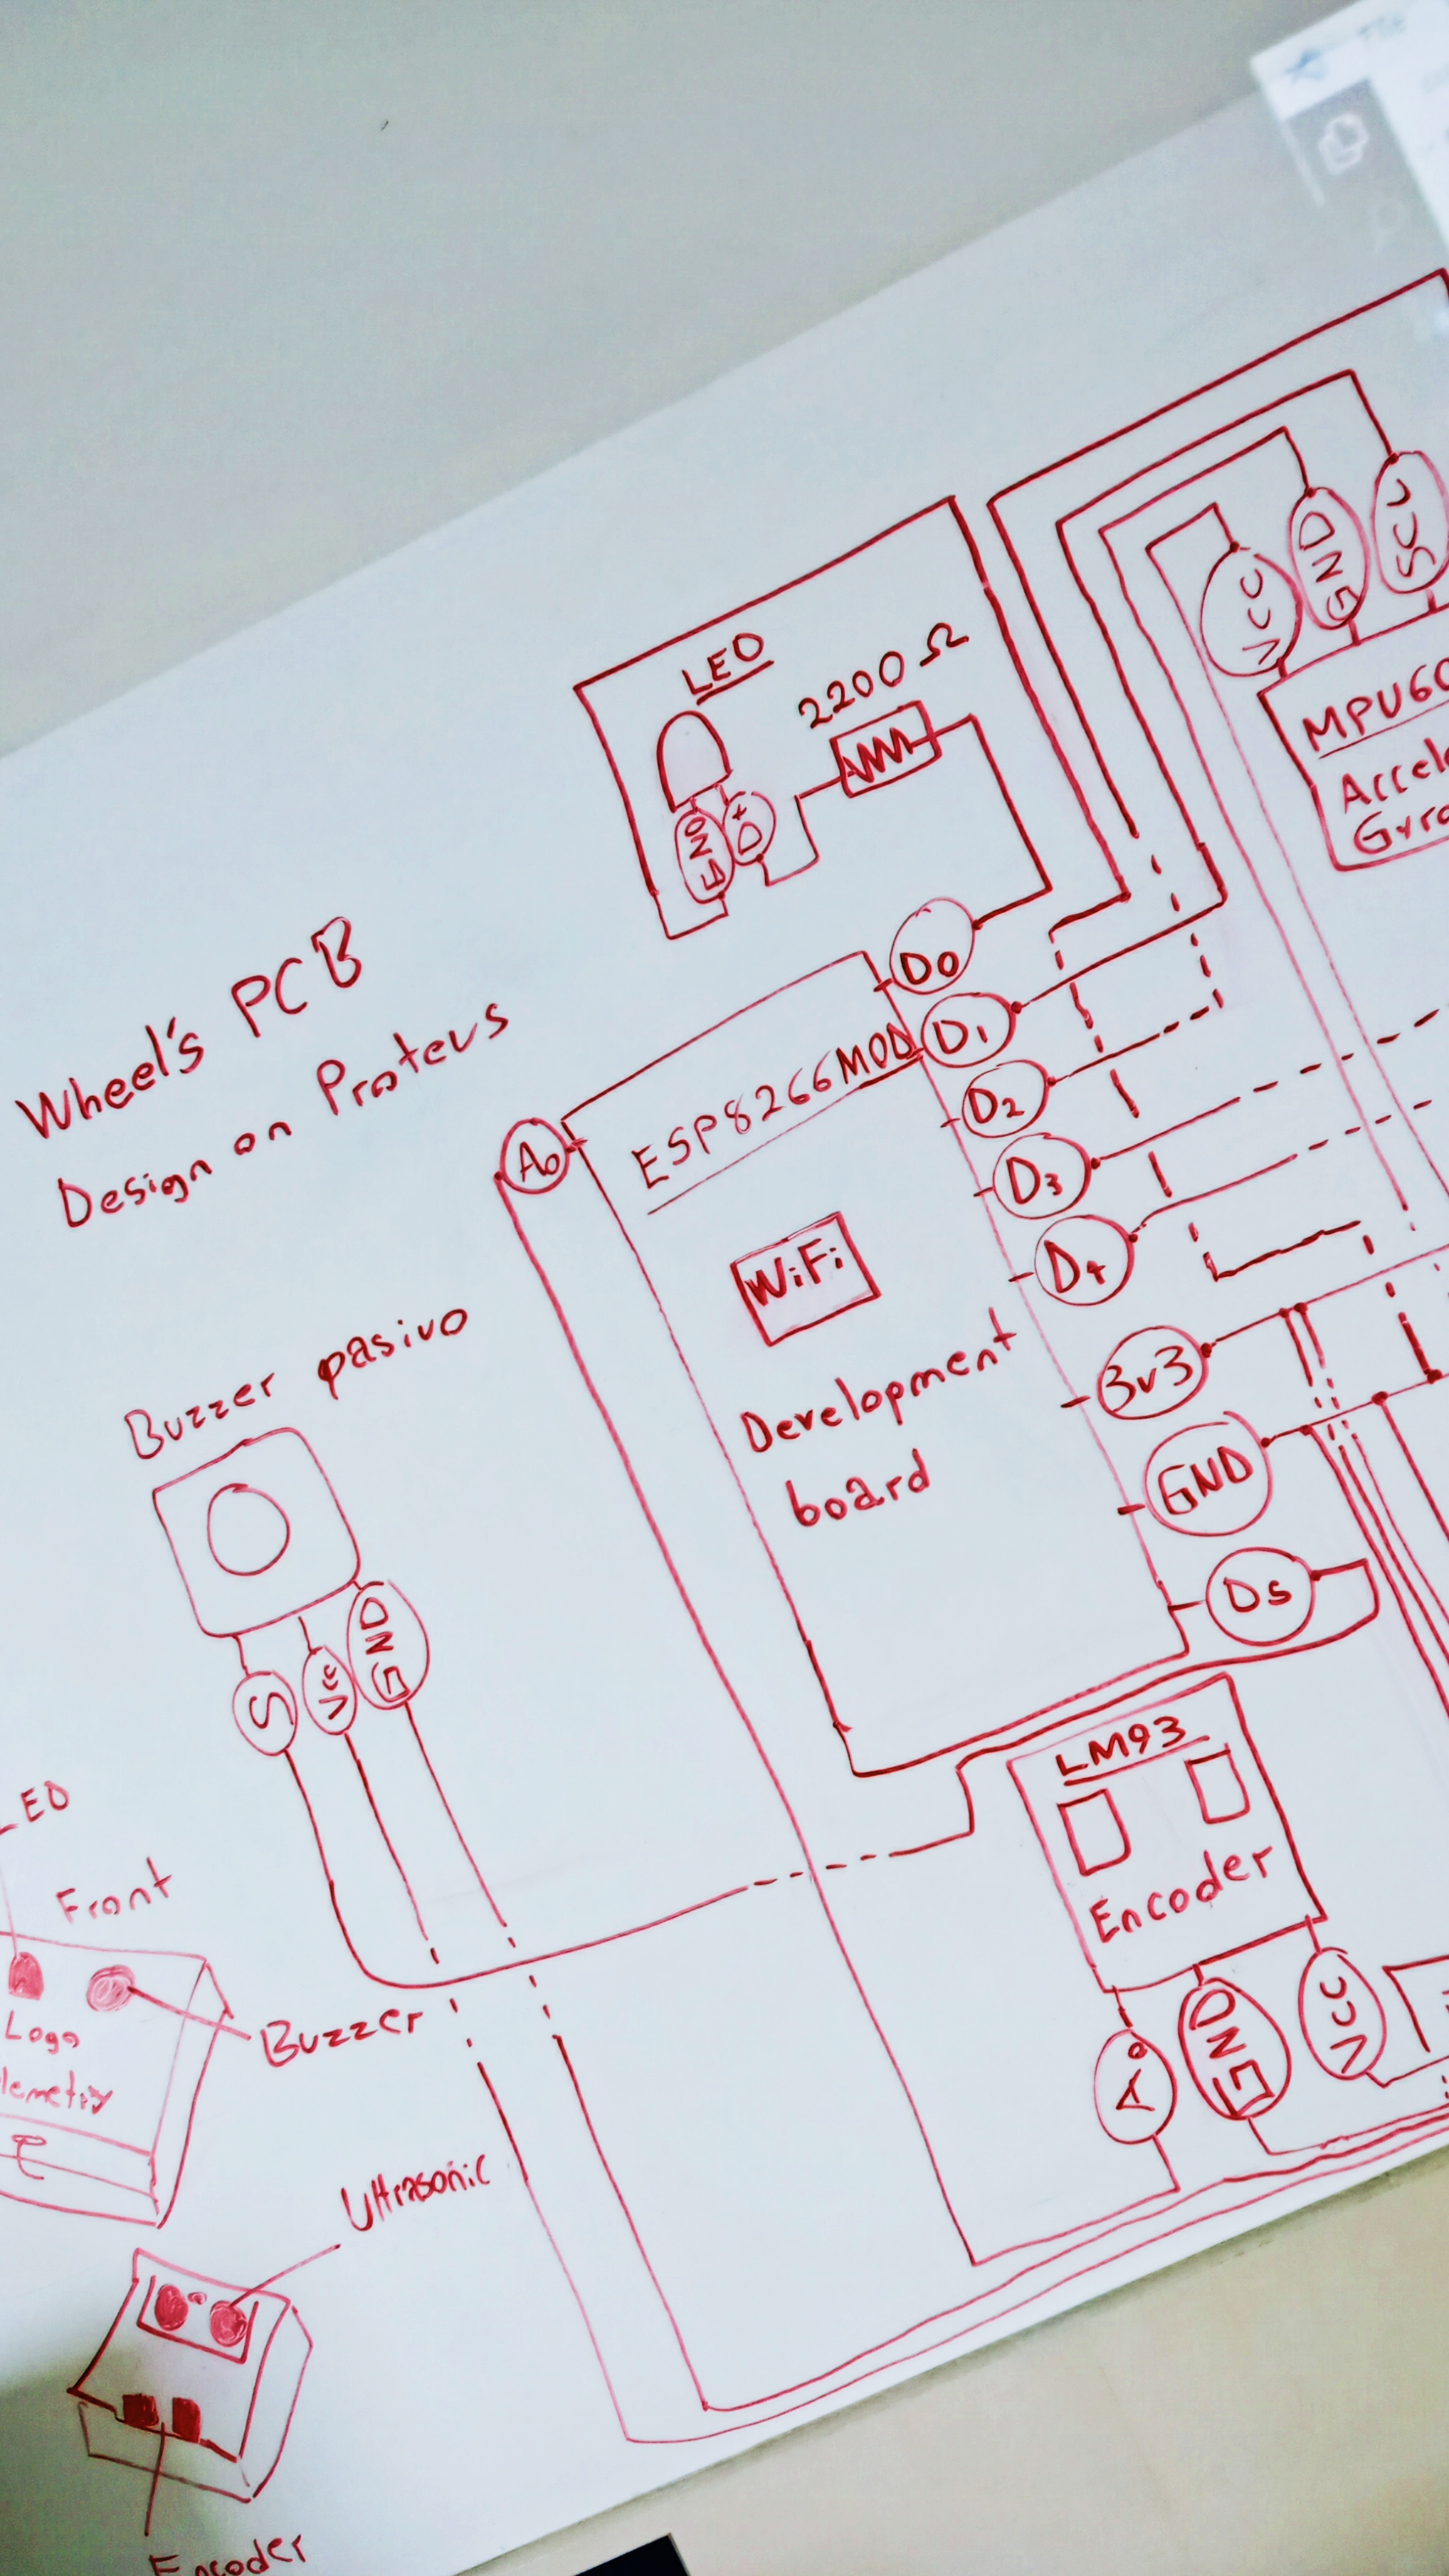 Wheel's PCB
Design on Proteus
LED
2200 Ω
GND
D+
VCC
GND
SCL
MPU60
Accele
Gyro
A0
ESP8266MOD
WiFi
Development
board
D0
D1
D2
D3
D4
3v3
GND
D5
Buzzer pasivo
S
Vcc
GND
LM93
Encoder
A0
GND
VCC
LED
Front
Logo
lemetry
Buzzer
Ultrasonic
Encoder